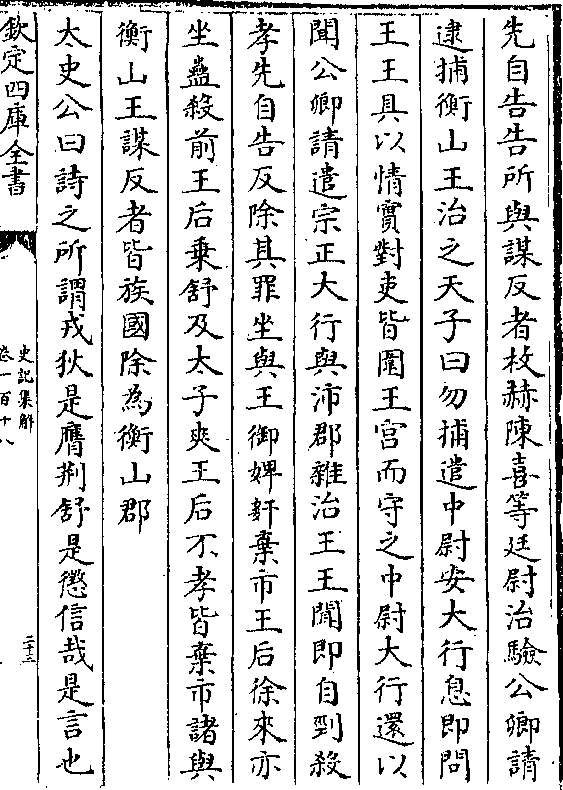 先自告告所與謀反者枚赫陳喜等廷尉治驗公卿請
逮捕衡山王治之天子曰勿捕遣中尉安大行息即問
王王具以情實對吏皆圍王宫而守之中尉大行還以
聞公卿請遣宗正大行與沛郡雜治王王聞即自剄殺
孝先自告反除其罪坐與王御婢姧棄市王后徐來亦
坐蠱殺前王后乗舒及太子爽王后不孝皆棄市諸與
衡山王謀反者皆族國除為衡山郡
太史公曰詩之所謂戎狄是膺荆舒是懲信哉是言也
欽定四庫全書
史記集解
卷一百十八
二十三